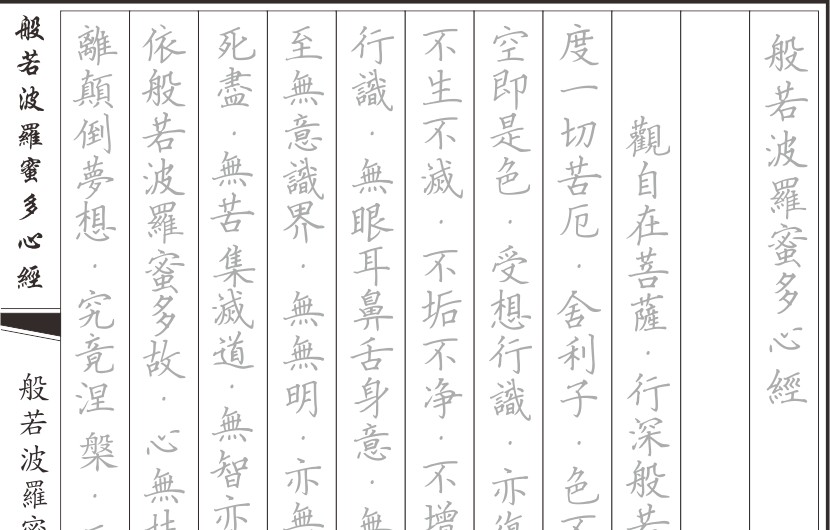 般若波羅蜜多心經
觀自在菩薩．行深般若
度一切苦厄．舍利子．色不
空即是色．受想行識．亦復
不生不滅．不垢不净．不增
行識．無眼耳鼻舌身意．無
至無意識界．無無明．亦無
死盡．無苦集滅道．無智亦
依般若波羅蜜多故．心無
離顛倒夢想．究竟涅槃．
般若波羅蜜多心經
般若波羅蜜